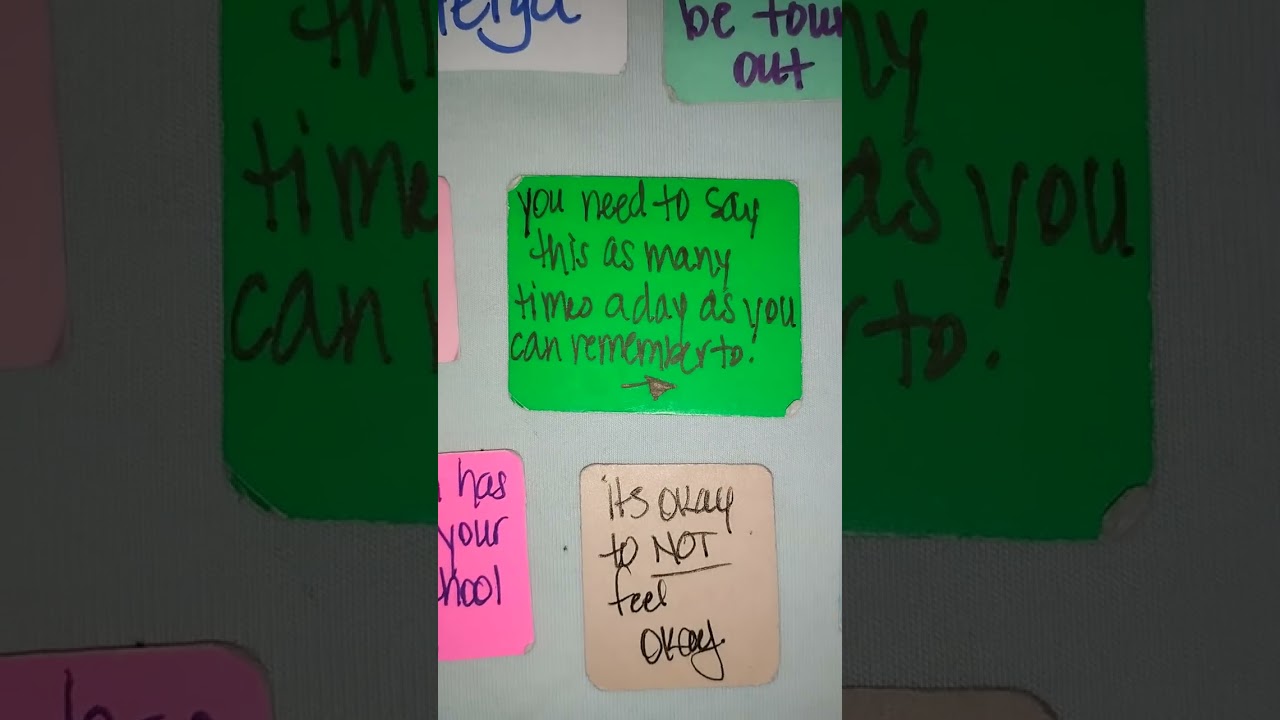 be
out
you need to say
this as many
times a day as you
can remember to!
has
your
its okay
to NOT
feel
okay